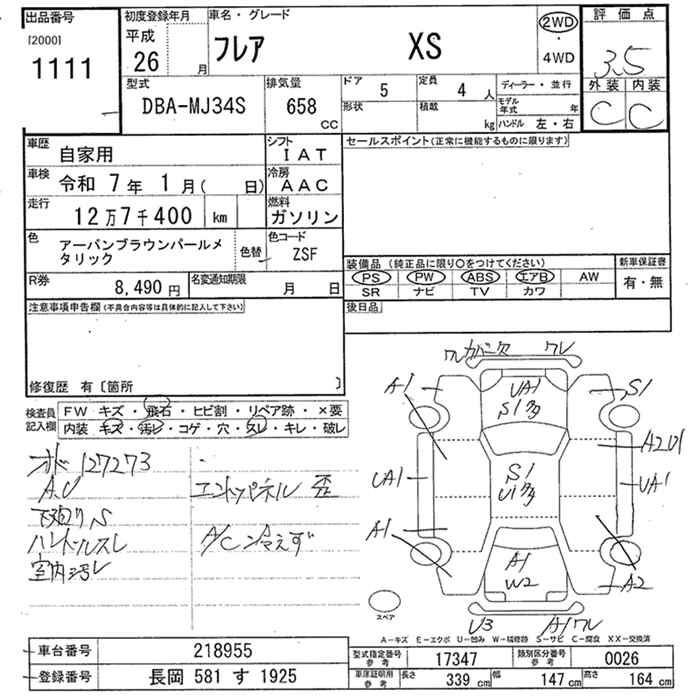 出品番号
[2000]
1111
初度登録年月
平成
26
月
車名・グレード
フレア
XS
2WD
・
4WD
評価点
3.5
外装 内装
C C
型式
DBA-MJ34S
排気量
658
CC
ドア
5
定員
4 人
形状
積載
kg
ディーラー・並行
モデル年式 年
ハンドル 左・右
車歴
自家用
シフト
IAT
車検
令和 7年 1月( 日)
冷房
AAC
走行
12万7千400 km
燃料
ガソリン
色
アーバンブラウンパールメタリック
色替
色コード
ZSF
R券
8,490 円
名変通知期限
月 日
セールスポイント(正常に機能するものに限ります)
装備品 (純正品に限り○をつけてください)
PS PW ABS エアB AW
SR ナビ TV カワ
新車保証書
有・無
後日品
注意事項申告欄(不具合内容等は具体的に記入して下さい)
修復歴 有〔箇所 〕
検査員
記入欄
FW キズ・飛石・ヒビ割・リペア跡・×要
内装 キズ・汚レ・コゲ・穴・スレ・キレ・破レ
127273
A.U
下廻りS
ハンドルスレ
室内汚レ
エンドパネル 歪
A/C 冷えず
ワレ
A1
UA1
S1多
S1
A2U1
UA1
S1
U1多
UA1
A1
A1
W2
A2
U3
A1ワレ
スペア
A-キズ E-エクボ U-凹み W-補修跡 S-サビ C-腐食 XX-交換済
車台番号
218955
登録番号
長岡 581 す 1925
型式指定番号
参考
17347
類別区分番号
参考
0026
車庫証明用
参考
長さ
339 cm
幅
147 cm
高さ
164 cm